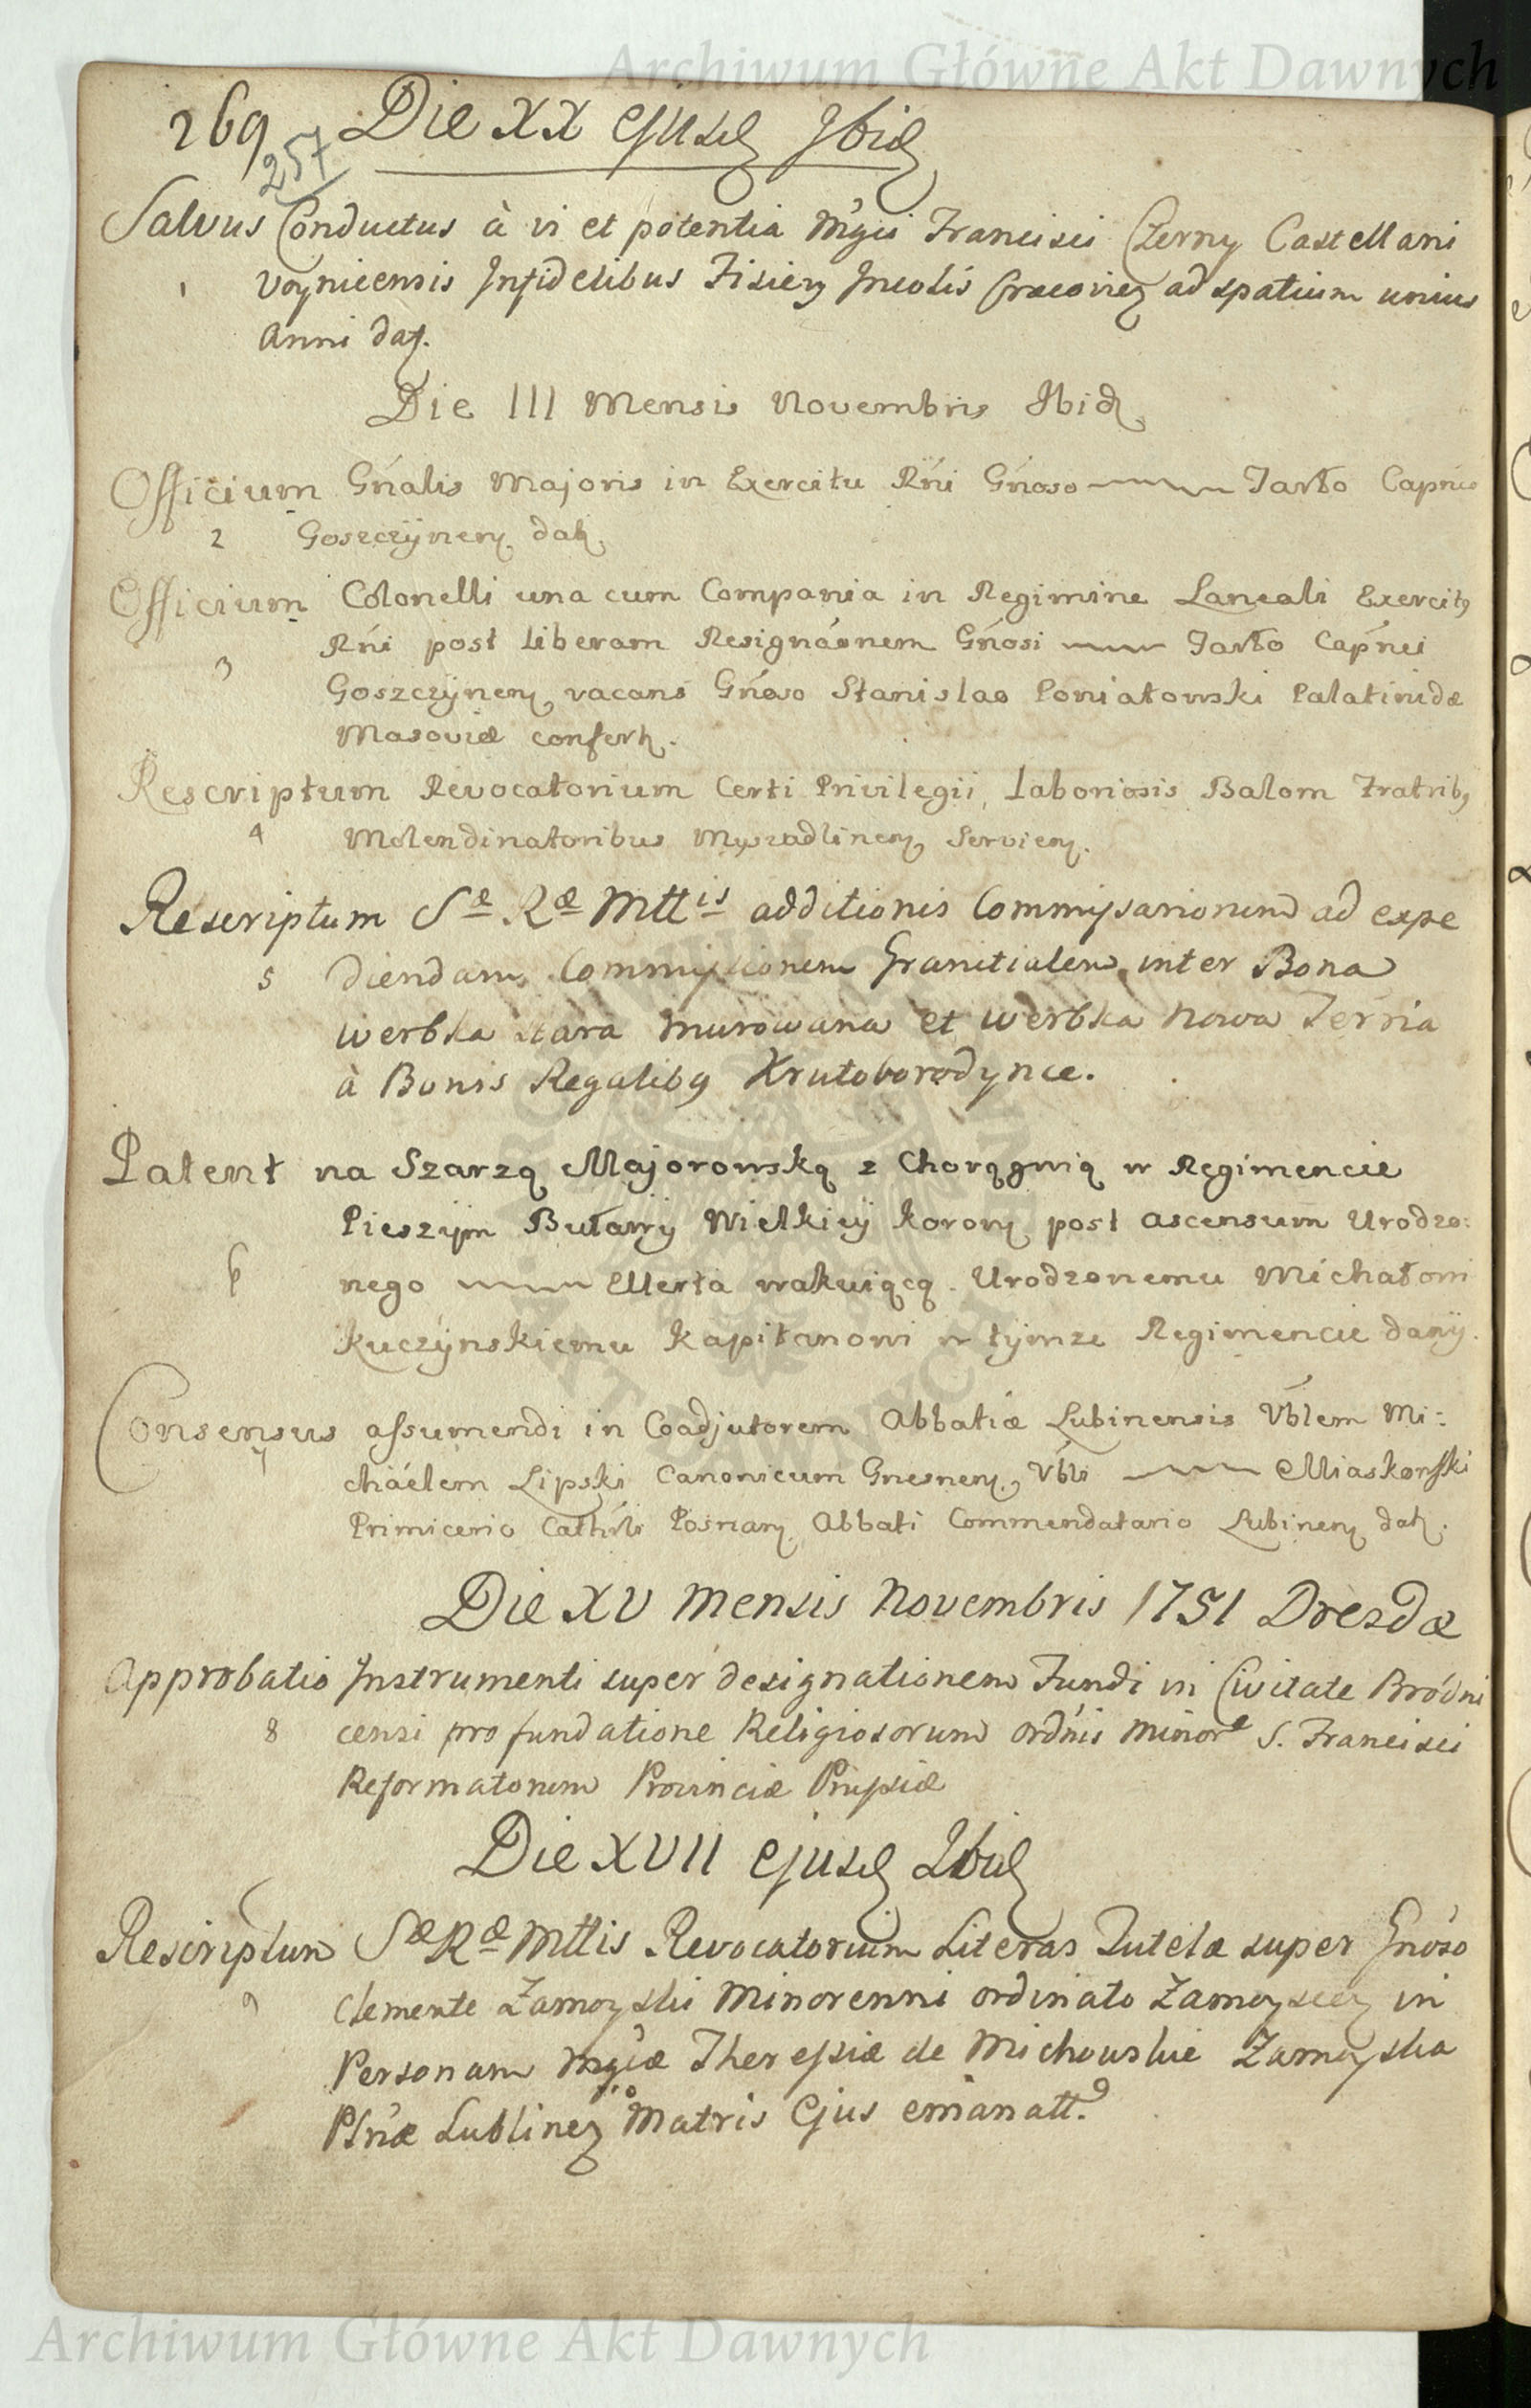 Archiwum Główne Akt Dawnych
269 Die XX ejusd Ibid
257
Salvus Conductus à vi et potentia Mgci Francisci Czerny Castellani
1 Voyniceensis Infidelibus Fisicz Incolis Cracovien ad spatium unius
Anni dat.
Die III Mensis Novembris Ibid
Officium Gńalis Majoris in Exercitu Rńi Gńoso Tarło Capńeo
2 Goszczÿnen dat.
Officium Colonelli una cum Compania in Regimine Laneali Exercitq
3 Rńi post liberam Resignáonem Gńosi Tarło Capńei
Goszczÿnen vacans Gńoso Stanislao Poniatowski Palatinidæ
Masoviæ confert.
Rescriptum Revocatorium Certi Privilegii, Laboriosis Balom Fratribq
4 Molendinatoribus Myszadlinen Servien.
Rescriptum Sæ Ræ Mttis additionis Commissariorum ad expe
5 diendam Commissionem Granitialem inter Bona
Werbka stara murowana et Werbka Nowa Terria
à Bonis Regalibq Krutoborodynce.
Patent na Szarzą Majorowską z Chorągwią w Regimencie
Pieszÿm Buławÿ Wielkieÿ Korony post ascensum Urodzo:
6 nego Ellerta wakuiącą Urodzonemu Michałowi
Kuczÿnskiemu Kapitanowi w tÿmze Regimencie danÿ.
Consensus assumendi in Coadjutorem Abbatiæ Lubinensis Vblem Mi:
7 cháelem Lipski Canonicum Gnesnen, Vbli Miaskowski
Primicerio Cathrli Posnan Abbati Commendatario Lubinen dat.
Die XV Mensis Novembris 1751 Dresdæ
Approbatio Instrumenti super designationem Fundi in Civitate Bródni
8 censi pro fundatione Religiosorum Ordńis Minor S. Francisci
Reformatorum Provinciæ Prussiæ
Die XVII ejusd Ibid
Rescriptum Sæ Ræ Mttis Revocatorium Literas Tutelæ super Gńoso
9 Clemente Zamoyski Minorenni ordinato Zamoyscen in
Personam Mgcæ Theressiæ de Michowskie Zamoyska
Płńæ Lublinen Matris Ejus emanatt.
Archiwum Główne Akt Dawnych